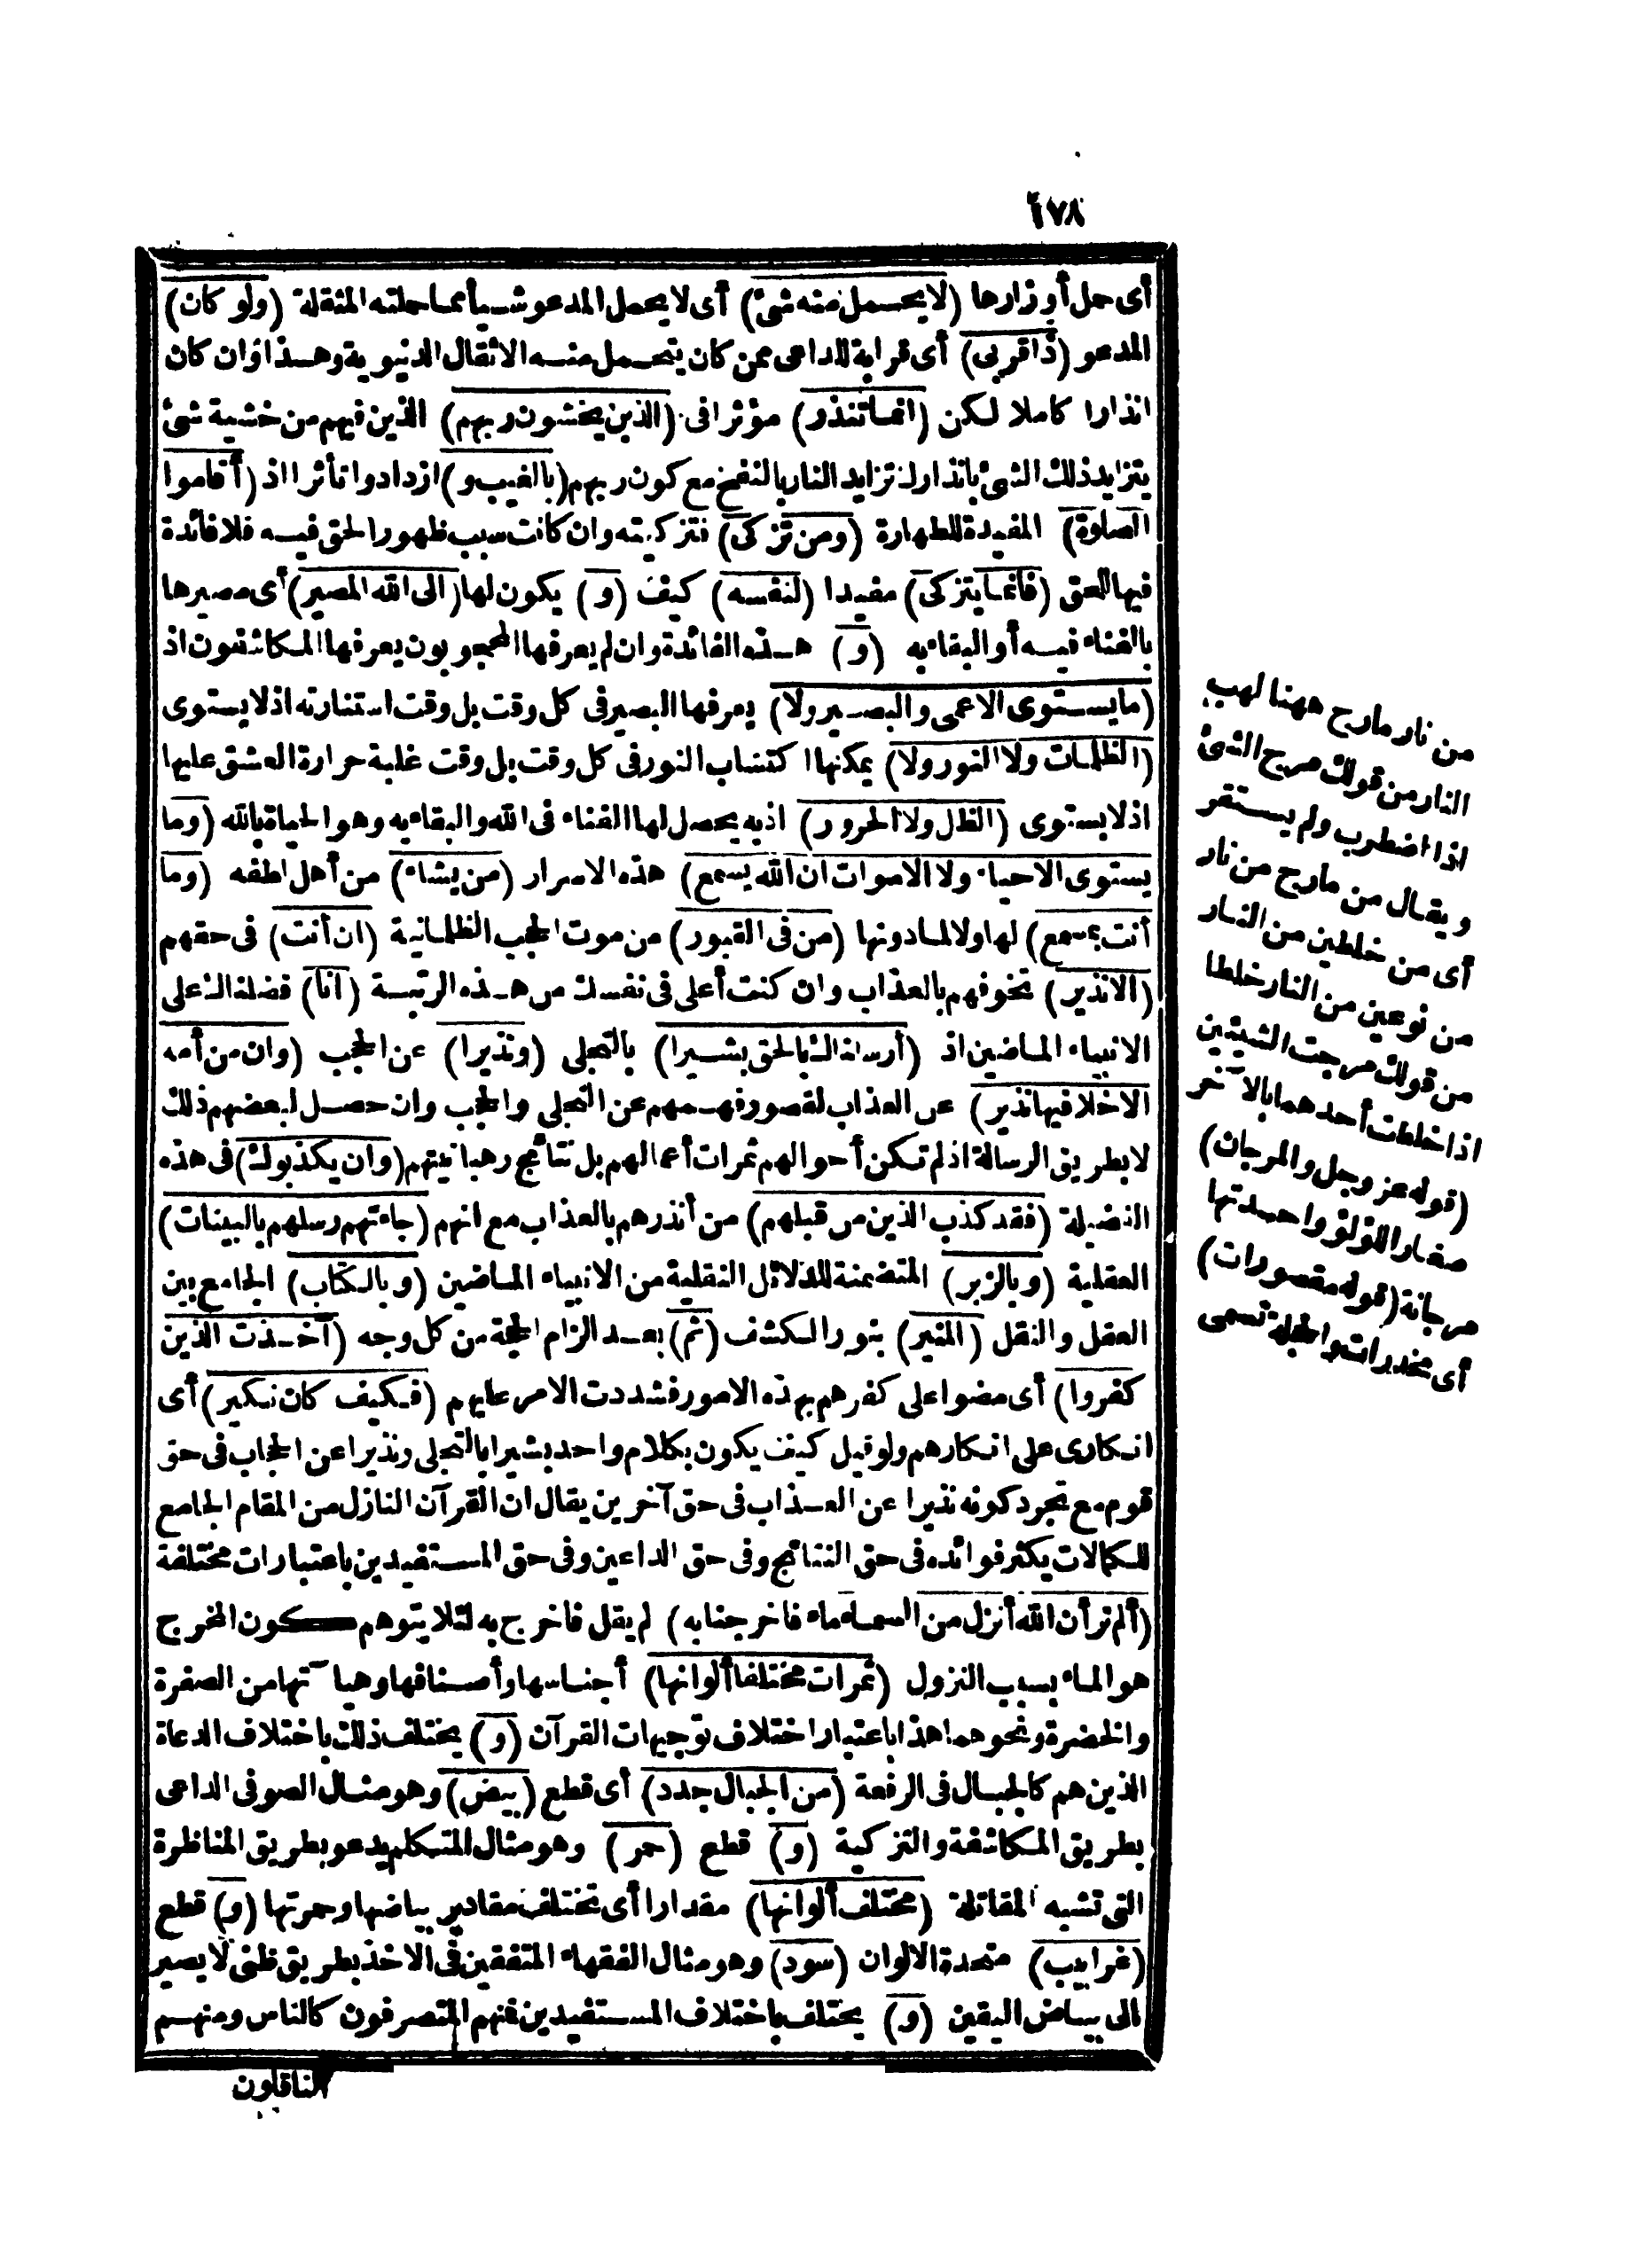 ١٧٨
أى حمل أوزارها (لا يحمل منه شئ) أى لا يحمل المدعو شيأ مما حملته المثقلة (ولو كان)
المدعو (ذا قربى) أى قرابة للداعى ممن كان يتحمل منه الاثقال الدنيوية وهذا وان كان
انذارا كاملا لكن (انما تنذر) مؤثرا فى (الذين يخشون ربهم) الذين فيهم من خشية شئ
يتزايد ذلك الشئ بانذارك تزايد النار بالنفخ مع كون ربهم (بالغيب و) ازدادوا تأثرا اذ (أقاموا
الصلوة) المفيدة للطهارة (ومن تزكى) فتزكيته وان كانت سبب ظهور الحق فيه فلا فائدة
فيها للحق (فانما يتزكى) مفيدا (لنفسه) كيف (و) يكون لها (الى الله المصير) أى مصيرها
بالفناء فيه أو البقاء به (و) هذه الفائدة وان لم يعرفها المحجوبون يعرفها المكاشفون اذ
(ما يستوى الاعمى والبصير ولا) يعرفها البصير فى كل وقت بل وقت استنارته اذ لا يستوى
(الظلمات ولا النور ولا) يمكنها اكتساب النور فى كل وقت بل وقت غلبة حرارة العشق عليها
اذ لا يستوى (الظل ولا الحرور) اذ به يحصل لها الفناء فى الله والبقاء به وهو الحياة بالله (وما
يستوى الاحياء ولا الاموات ان الله يسمع) هذه الاسرار (من يشاء) من أهل لطفه (وما
أنت بمسمع) لها ولا لما دونها (من فى القبور) من موت الحجب الظلمانية (ان أنت) فى حقهم
(الا نذير) تخوفهم بالعذاب وان كنت أعلى فى نفسك من هذه الرتبة (انا) فضلناك على
الانبياء الماضين اذ (أرسلناك بالحق بشيرا) بالتجلى (ونذيرا) عن الحجب (وان من أمه
الاخلا فيها نذير) عن العذاب لقصور فهمهم عن التجلى والحجب وان حصل لبعضهم ذلك
لا بطريق الرسالة اذ لم تكن أحوالهم ثمرات أعمالهم بل نتائج رهبانيتهم (وان يكذبوك) فى هذه
الفضيلة (فقد كذب الذين من قبلهم) من أنذرهم بالعذاب مع انهم (جاءتهم رسلهم بالبينات)
العقلية (وبالزبر) المتضمنة للدلائل النقلية من الانبياء الماضين (وبالكتاب) الجامع بين
العقل والنقل (المنير) بنور الكشف (ثم) بعد الزام الحجة من كل وجه (أخذت الذين
كفروا) أى مضوا على كفرهم بهذه الامور فشددت الامر عليهم (فكيف كان نكير) أى
انكارى على انكارهم ولو قيل كيف يكون بكلام واحد بشيرا بالتجلى ونذيرا عن الحجاب فى حق
قوم مع تجرد كونه نذيرا عن العذاب فى حق آخرين يقال ان القرآن النازل من المقام الجامع
للكمالات يكثر فوائده فى حق النتائج وفى حق الداعين وفى حق المستفيدين باعتبارات مختلفة
(ألم تر أن الله أنزل من السماء ماء فاخرجنا به) لم يقل فاخرج به لئلا يتوهم كون المخرج
هو الماء بسبب النزول (ثمرات مختلفا ألوانها) أجناسها وأصنافها وهيآتها من الصفرة
والخضرة ونحوهما هذا باعتبار اختلاف توجيهات القرآن (و) يختلف ذلك باختلاف الدعاة
الذين هم كالجبال فى الرفعة (من الجبال جدد) أى قطع (بيض) وهو مثال الصوفى الداعى
بطريق المكاشفة والتزكية (و) قطع (حمر) وهو مثال المتكلم يدعو بطريق المناظرة
التى تشبه المقاتلة (مختلف ألوانها) مقدارا أى تختلف مقادير بياضها وحمرتها (و) قطع
(غرابيب) متحدة الالوان (سود) وهو مثال الفقهاء المتفقين فى الاخذ بطريق ظنى لا يصير
الى بياض اليقين (و) يختلف باختلاف المستفيدين فنهم المتصرفون كالناس ومنهم
الناقلون
من نار مارج ههنا لهب
النار من قولك مرج الشئ
اذا اضطرب ولم يستقر
ويقال من مارج من نار
أى من خلطين من النار
من نوعين من النار خلطا
من قولك مرجت الشيئين
اذا خلطت أحدهما بالآخر
(قوله عز وجل والمرجان)
صغار اللؤلؤ واحدتها
مرجانة (قوله مقصورات)
أى مخدرات والحجلة تسمى